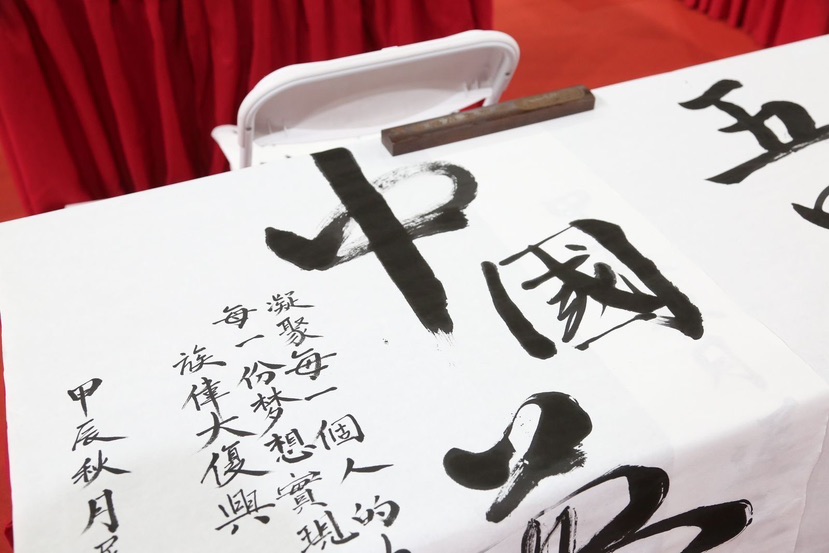 中國
凝聚每一個人的
每一份梦想實現
族偉大復興
甲辰秋月